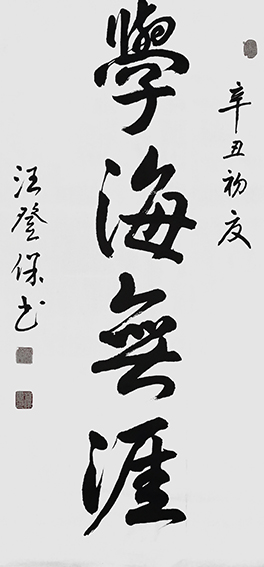 辛丑初夏
學海無涯
汪登保书